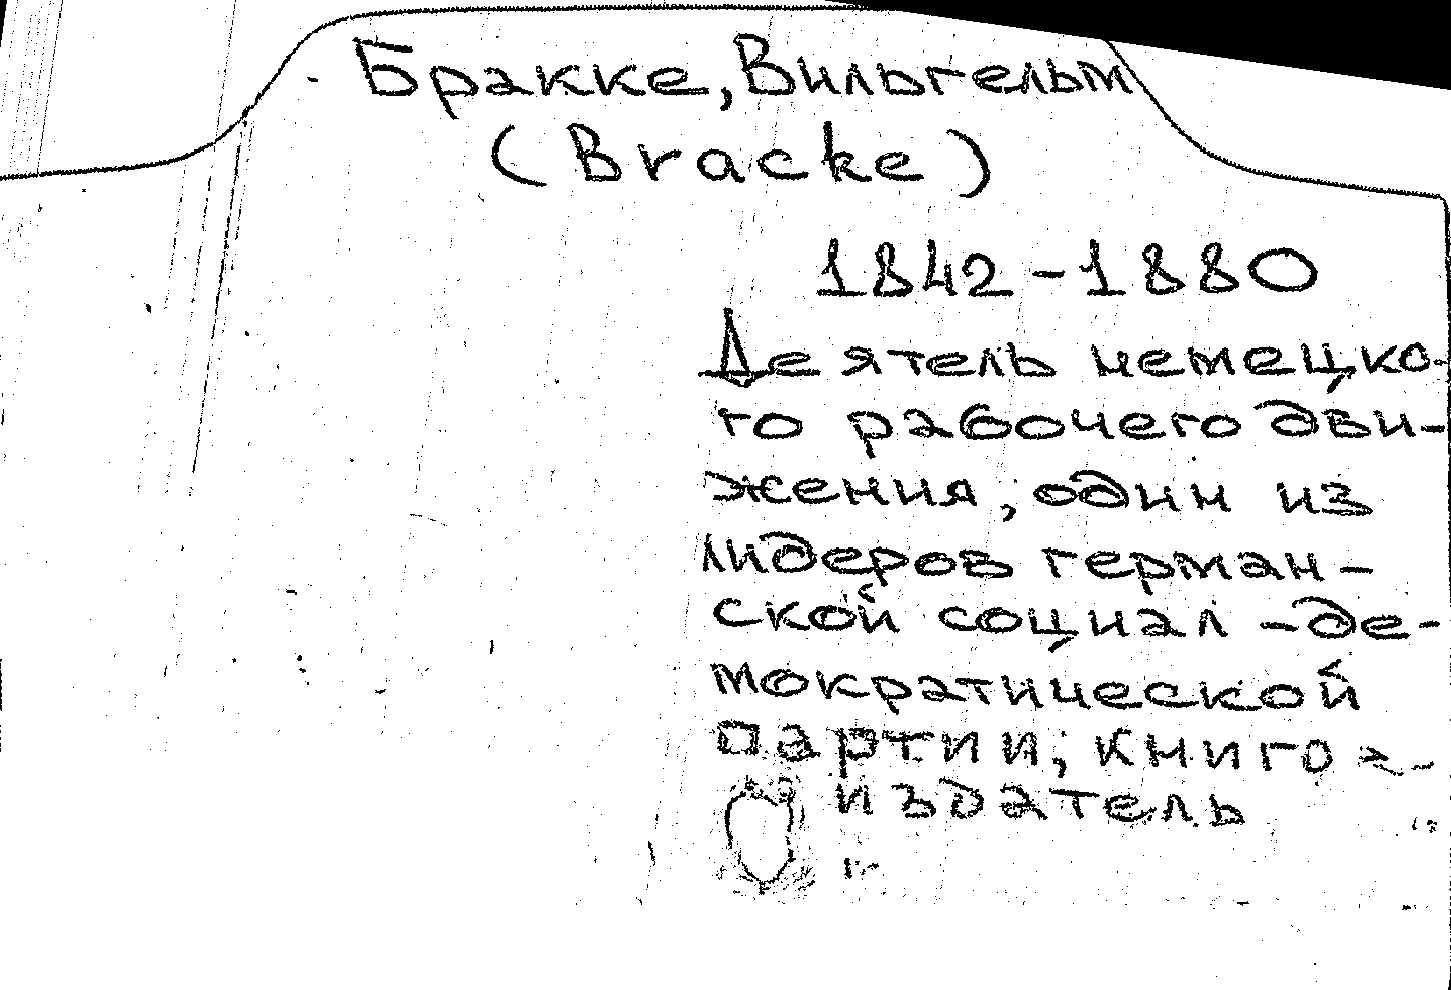 Бракке, Вильгельм
(Bracke)
1842-1880
Деятель немецко-
го рабочего дви-
жения, один из
лидеров герман-
ской социал-де-
мократической
партии, книго-
издатель